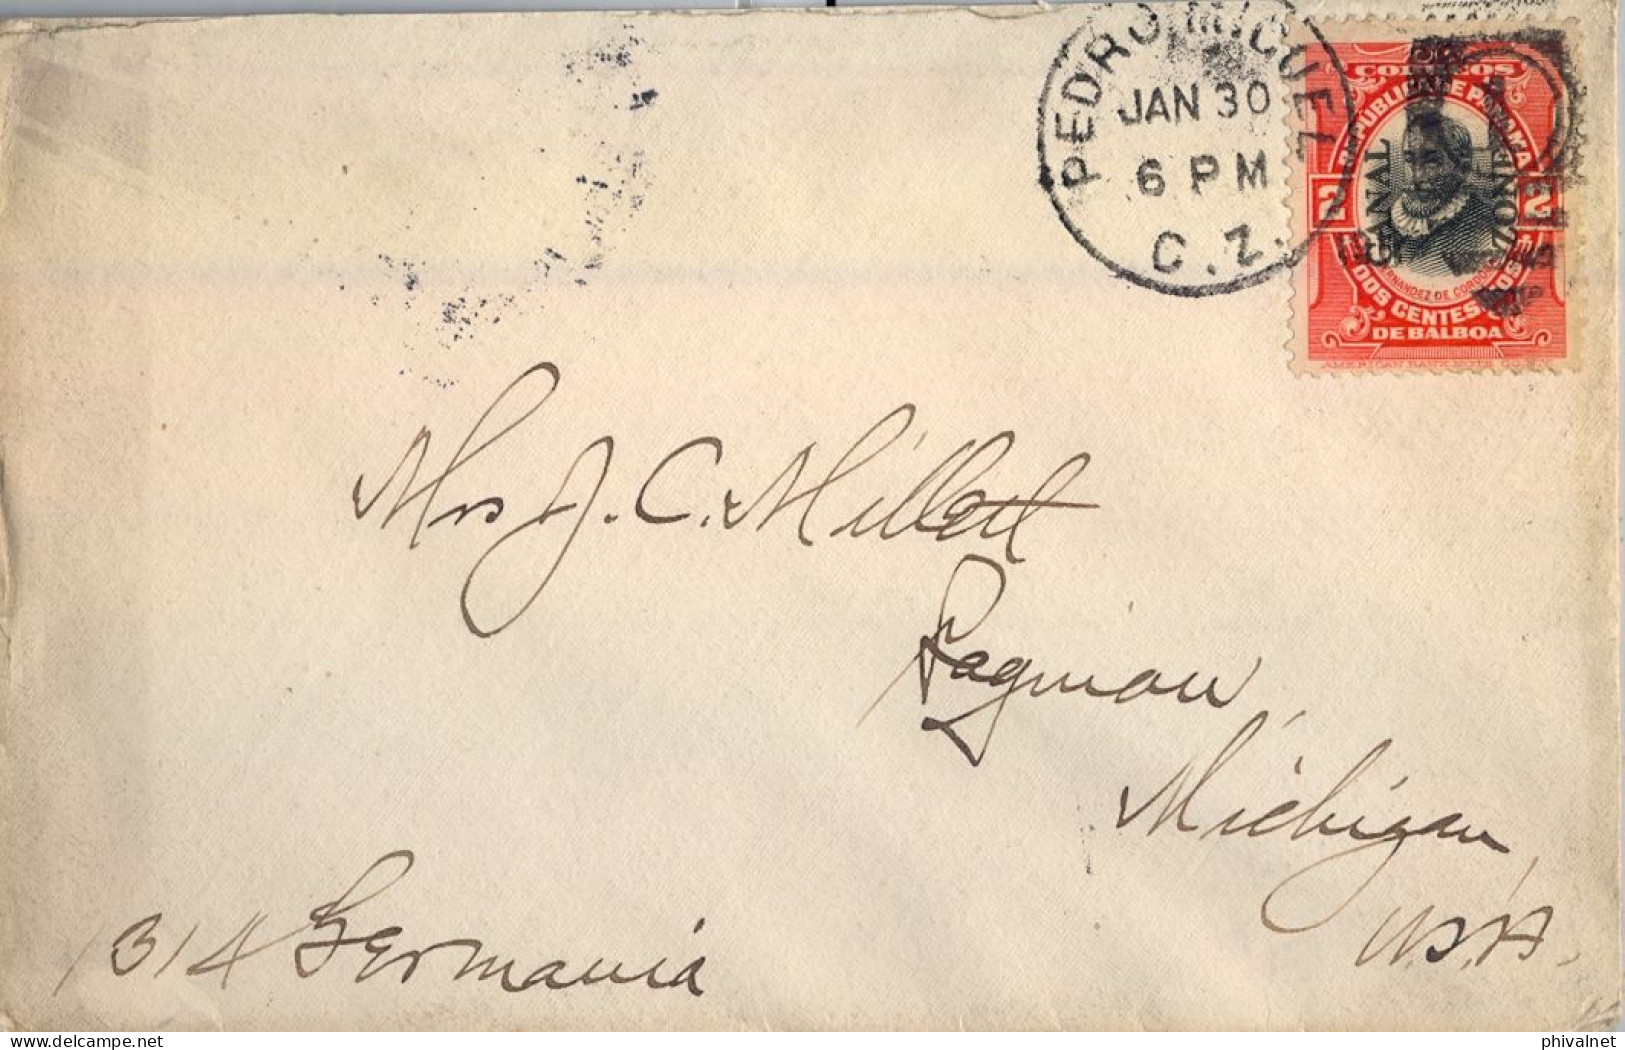 PEDRO MIGUEL
JAN 30
6 PM
C.Z.
CORREOS
REPUBLICA DE PANAMA
CANAL
ZONE
2 2
FERNANDEZ DE CORDOBA
DOS CENTESIMOS
DE BALBOA
AMERICAN BANK NOTE CO.
Mrs J. C. Millett
Saginaw,
Michigan,
U.S.A.
1314 Germania
phivalnet